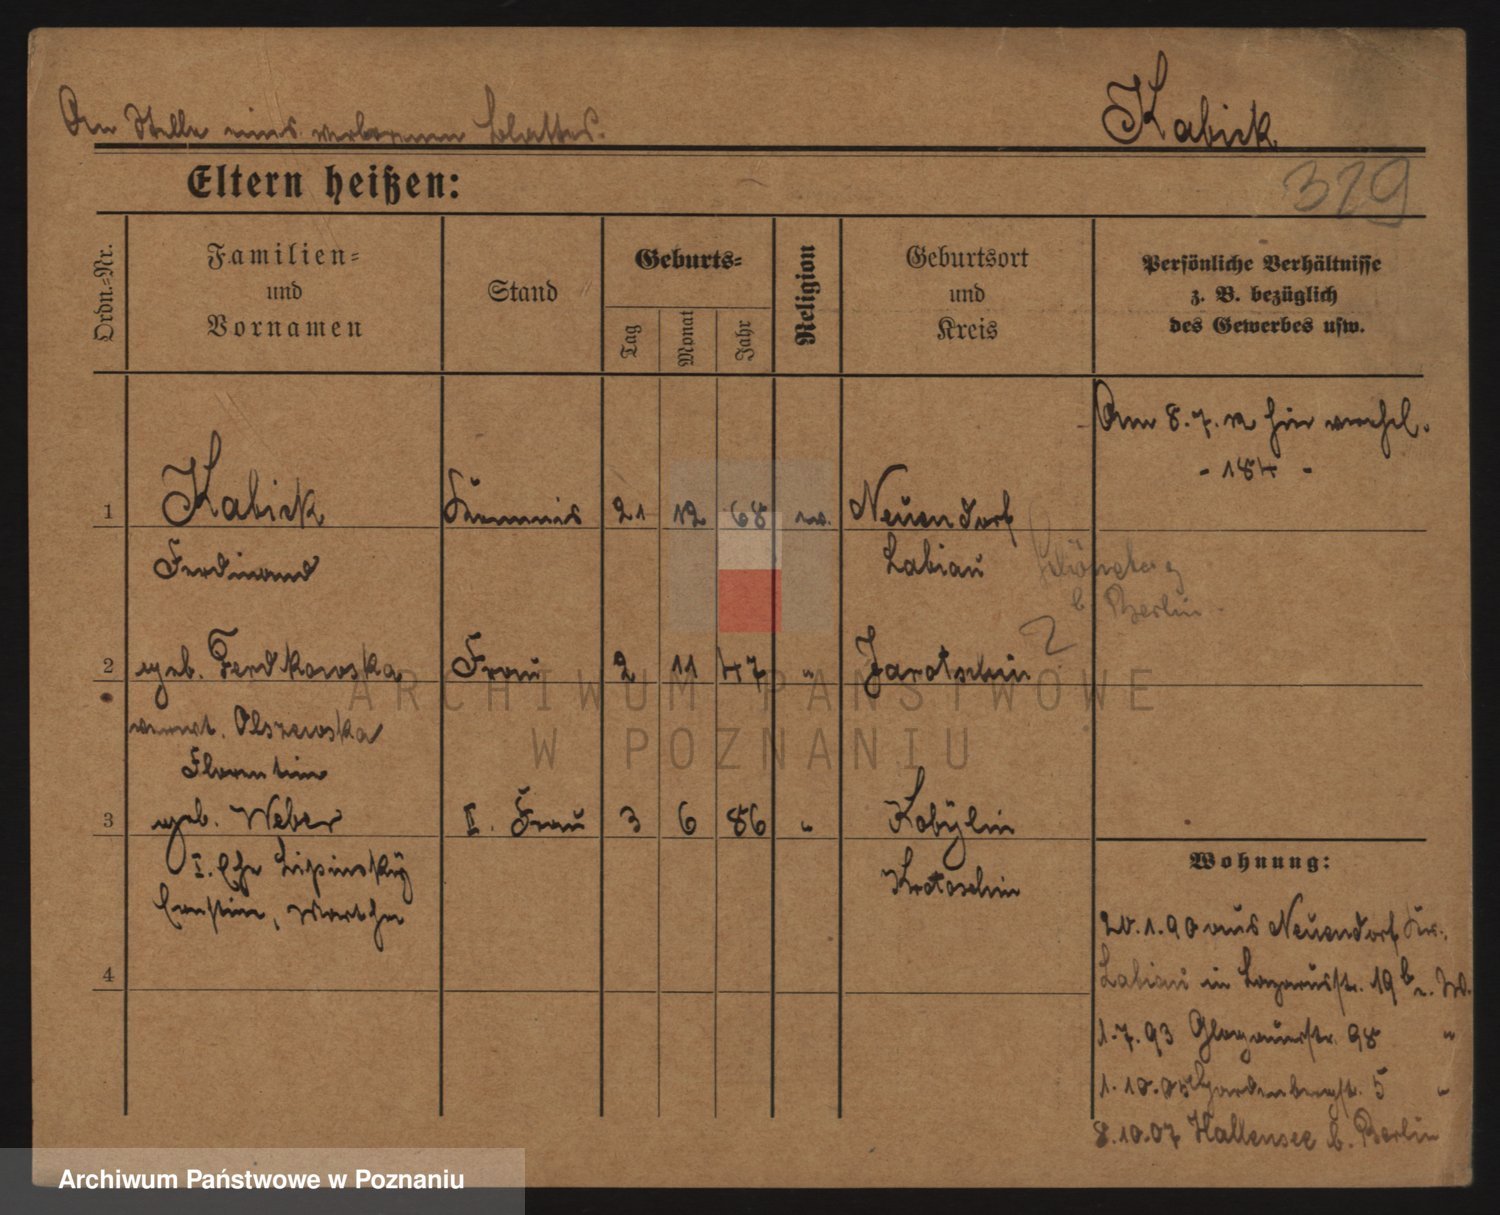 An Stelle eines verlorenen Blattes.
Kabick
Eltern heißen:
329
Ordn.=Nr.
Familien=
und
Vornamen
Stand
Geburts=
Tag
Monat
Jahr
Religion
Geburtsort
und
Kreis
Persönliche Verhältnisse
z. B. bezüglich
des Gewerbes usw.
Am 8.7. hier verehel.
- 184 -
1 Kabick 21 12 68 Neuendorf
Ferdinand Labiau Schöneberg
b Berlin
2 geb. Ferdkowska Frau 2 11 47 " Jarotschin
verwt. Olszewska
Florentine
3 geb. Weber II. Frau 3 6 86 " Kobylin
I. Ehe Lipinsky Krotoschin
Ernstine, Martha
4
Wohnung:
20.1.90 aus Neuendorf Krs.
Labiau in Lazarusstr. 19 b
1.7.93 Glogauerstr. 98 "
1.10.05 Gardenbergstr. 5 "
8.10.07 Hallensee b. Berlin
ARCHIWUM PAŃSTWOWE
W POZNANIU
Archiwum Państwowe w Poznaniu